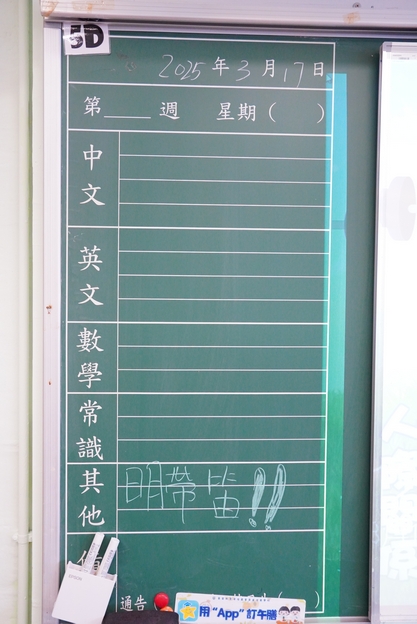 5D
2025年3月17日
第____週 星期( )
中文
英文
數學
常識
其他 明帶笛!!
通告
用“App”訂午膳